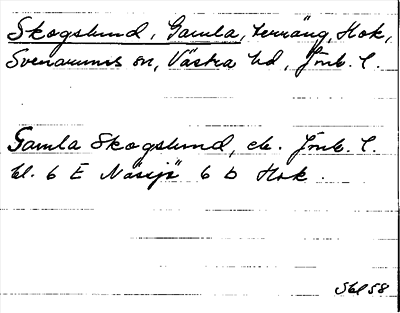 Skogslund, Gamla, terräng, Hok,
Svenarums sn, Västra hd, Jönk. l.
Gamla Skogslund, ek. Jönk. l.
bl. 6 E Nässjö 6 b Hok.
Skl 58